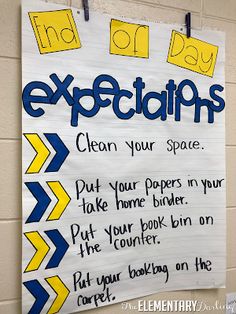 End of Day
expectations
Clean your space.
Put your papers in your
take home binder.
Put your book bin on
the counter.
Put your bookbag on the
carpet.
The ELEMENTARY Darling